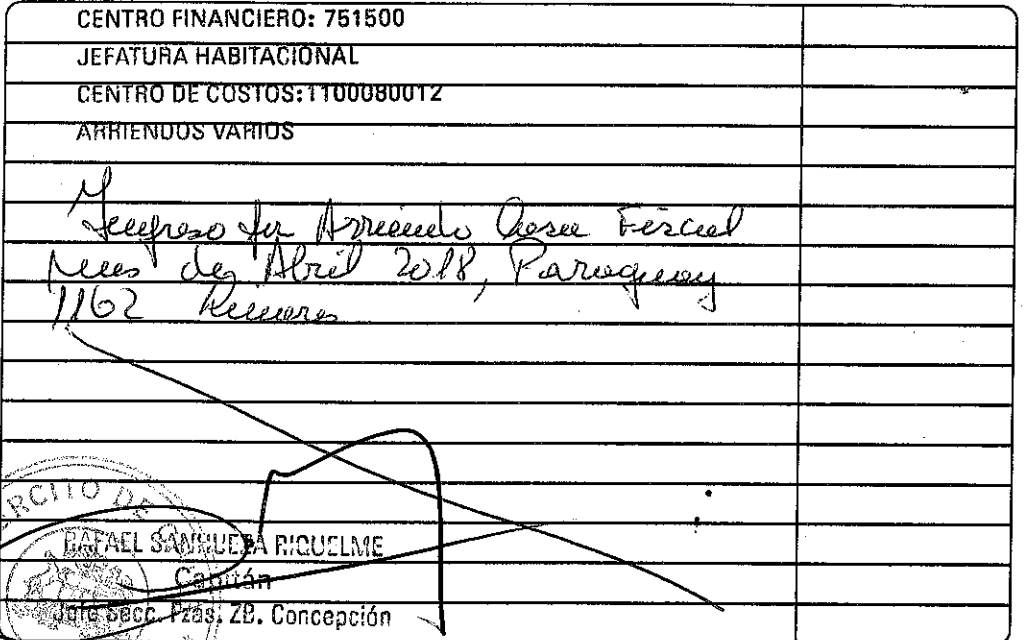 CENTRO FINANCIERO: 751500
JEFATURA HABITACIONAL
CENTRO DE COSTOS: 1100080012
ARRIENDOS VARIOS
Ingreso por Arriendo Casa Fiscal
mes de Abril 2018, Paraguay
1162 Linares
ERCITO DE
RAFAEL SANHUEZA RIQUELME
Capitán
Jefe Secc. Fzas. ZB. Concepción